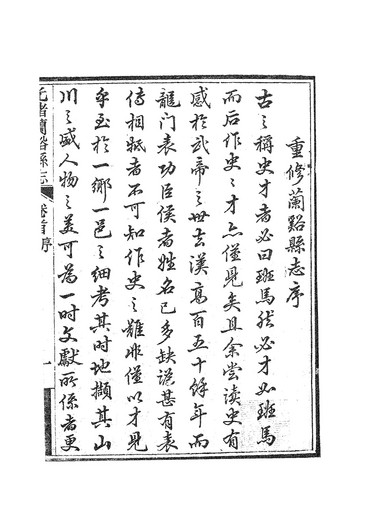 重修蘭谿縣志序
古之稱史才者必曰班馬然必才如班馬
而后作史之才亦僅見矣且余嘗读史有
感於武帝之世去漢髙百五十餘年而
龍门表功臣侯者姓名已多缺
傳相牴者不可知作史之難非僅以才見
乎至於一鄉一邑之细考其时地擷其山
川之盛人物之美可為一时文獻所係者更
光緒蘭谿縣志
卷首序
一